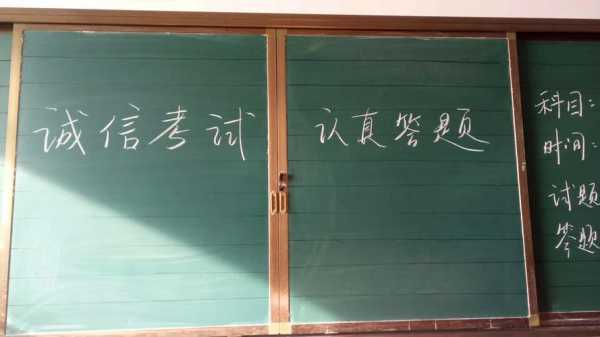 诚信考试
认真答题
科目:
时间:
试题
答题